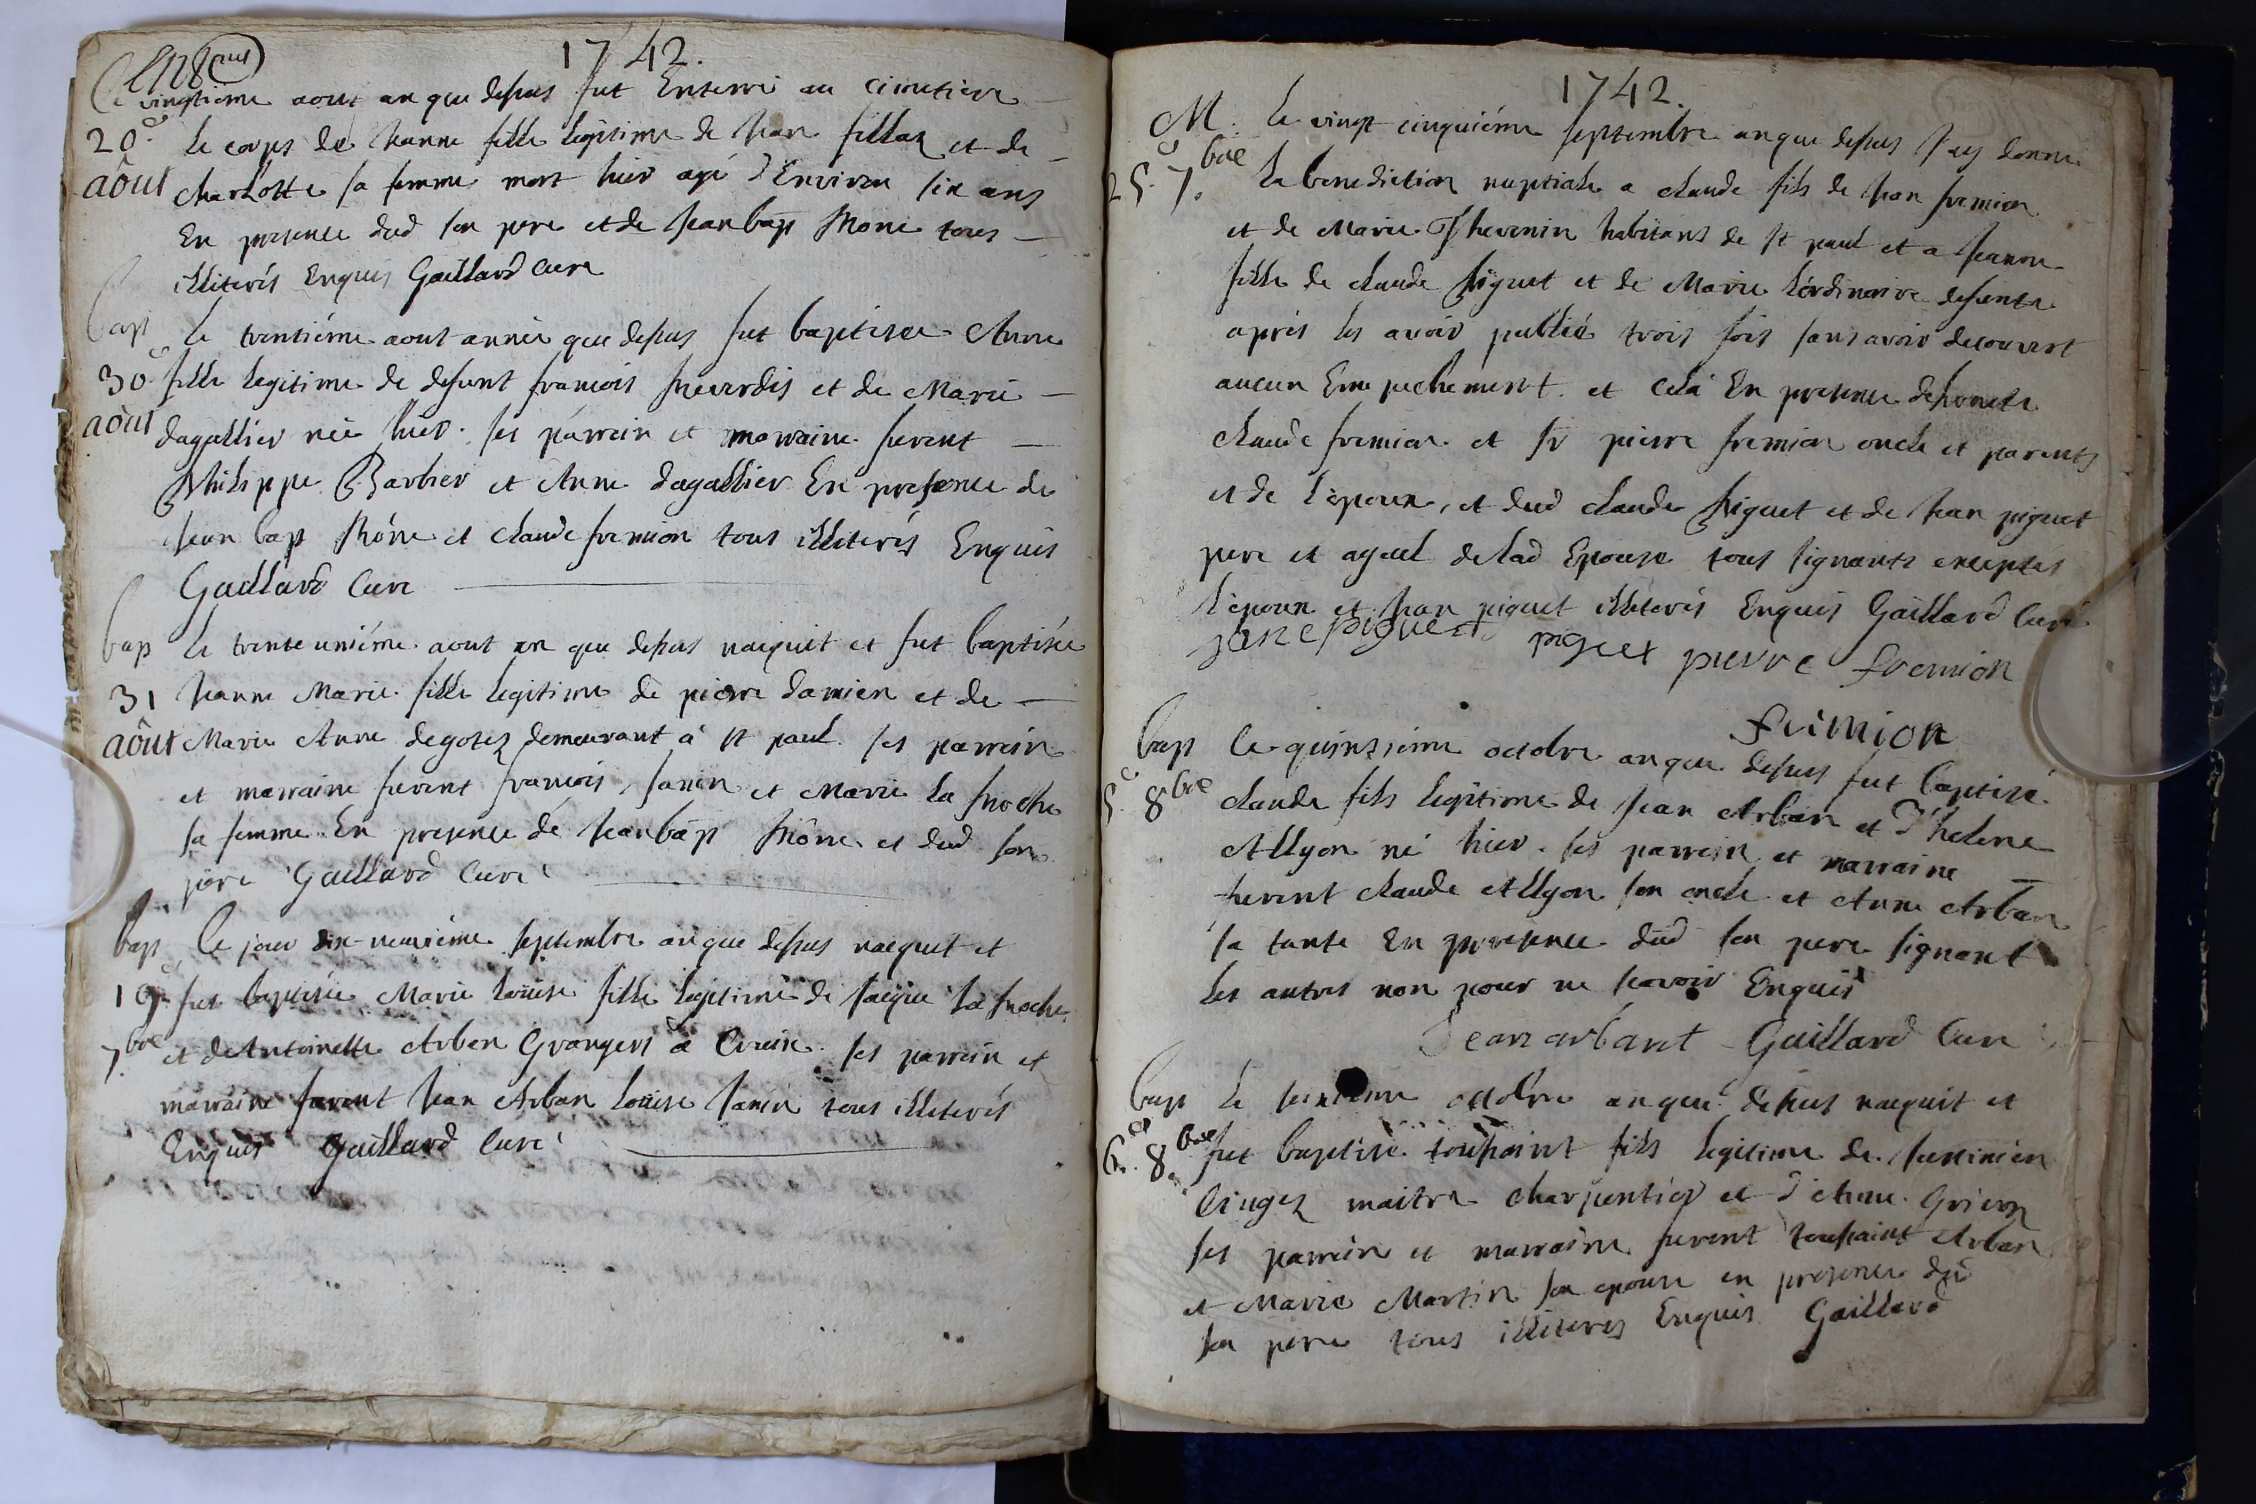 1742.
Le vingtieme aout an que dessus fut Enterré au cimetiere
20e août
le corps de Jeanne fille legitime de Jean fillan et de
charlotte sa femme mort hier agé d'Environ six ans
En presence dud son pere et de Jean bap Mône tous
illiterés Enquis Gaillard Curé
bap
Le trentiéme aout année que dessus fut baptisee Anne
30e août
fille legitime de defunt francois frecerdis et de Marie
dagallier née hier. ses parrein et marraine furent
Philippe Barbier et Anne dagallier En presence de
Jean bap Mône et claude fremion tous illiterés Enquis
Gaillard Curé
bap
Le trente uniéme aout an que dessus naequit et fut baptisée
31 août
Jeanne Marie fille legitime de pierre damien et de
Marie Anne degotez demeurant à st paul ses parrein
et marraine furent francois Janin et Marie La froche
sa femme En presence de Jean bap Mône et dud son
pere Gaillard Curé
bap
Le jour dix-neuviéme septembre an que dessus naequit et
19e 7.bre
fut baptisée Marie Louise fille legitime de Jaqûe La froche
et de Antoinette Arban Grangers à Crain ses parrein et
marraine furent Jean Arban Louise Janin tous illiterés
Enquis Gaillard Curé
1742.
M. Le vingt cinquiéme septembre an que dessus J'ay donné
25e 7.bre
la benediction nuptiale a claude fils de Jean fremion
et de Marie Thevenin habitans de st paul et a Jeanne
fille de claude piguet et de Marie L'ordinaire defunte
aprés les avoir publié trois fois sans avoir decouvert
aucun Empechement. et cela En presence de honete
claude fremion et sr pierre fremion oncle et parents
et de l'epoux, et dud claude piguet et de Jean piguet
pere et ayeul de lad Epouse tous signants exceptés
l'epoux et Jean piguet illiterés Enquis Gaillard Curé
jane piguet piguet pierre fremion
frimion
bap
Le quinsiéme octobre an que dessus fut baptisé
5.e 8bre
claude fils legitime de Jean Arban et d'helene
Allyon né hier. ses parrein et marraine
furent claude Allyon son oncle et Anne Arban
sa tante En presence dud son pere signant
Les autres non pour ne scavoir Enquis
Jean arbant Gaillard Curé
bap
Le seizieme octobre an que dessus naequit et
6.e 8bre
fut baptisé toussaint fils legitime de Justinien
Cingez maitre charpentier et d'Anne Grivon
ses parrein et marraine furent toussaint Arban
et Marie Martin son epouse en presence du
son pere tous illiteres Enquis Gaillard